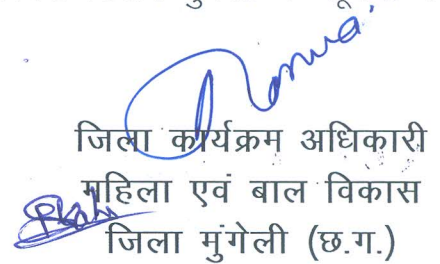 जिला कार्यक्रम अधिकारी
महिला एवं बाल विकास
जिला मुंगेली (छ.ग.)